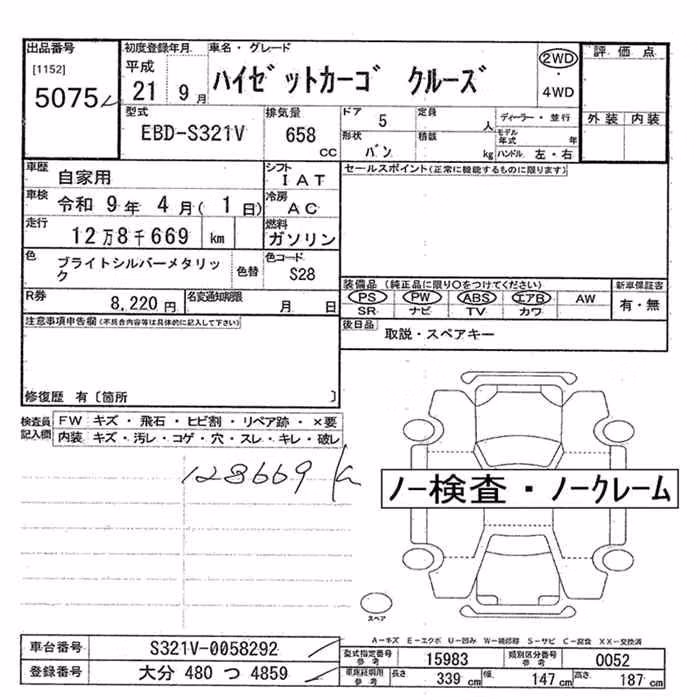 出品番号 初度登録年月 車名・グレード 評価点
[1152] 平成 ハイゼットカーゴ クルーズ 2WD
5075 21 9月 4WD
型式 排気量 ドア 5 定員 人 ディーラー・並行 外装 内装
EBD-S321V 658 cc 形状 バン 積載 kg モデル年式 年 ハンドル 左・右
車歴 自家用 シフト IAT セールスポイント(正常に機能するものに限ります)
車検 令和 9年 4月(1日) 冷房 AC
走行 12万8千669 km 燃料 ガソリン
色 ブライトシルバーメタリック 色替 色コード S28
装備品(純正品に限り○をつけてください) 新車保証書
R券 8,220円 名変通知期限 月 日 PS PW ABS エアB AW 有・無
SR ナビ TV カワ
注意事項申告欄(不具合内容等は具体的に記入して下さい) 後日品 取説・スペアキー
修復歴 有〔箇所 〕
検査員記入欄 FW キズ・飛石・ヒビ割・リペア跡・×要
内装 キズ・汚レ・コゲ・穴・スレ・キレ・破レ
128669 k
ノー検査・ノークレーム
スペア
A-キズ E-エクボ U-凹み W-補修跡 S-サビ C-腐食 XX-交換済
車台番号 S321V-0058292 型式指定番号 参考 15983 類別区分番号 参考 0052
登録番号 大分 480 つ 4859 車庫証明用 参考 長さ 339 cm 幅 147 cm 高さ 187 cm